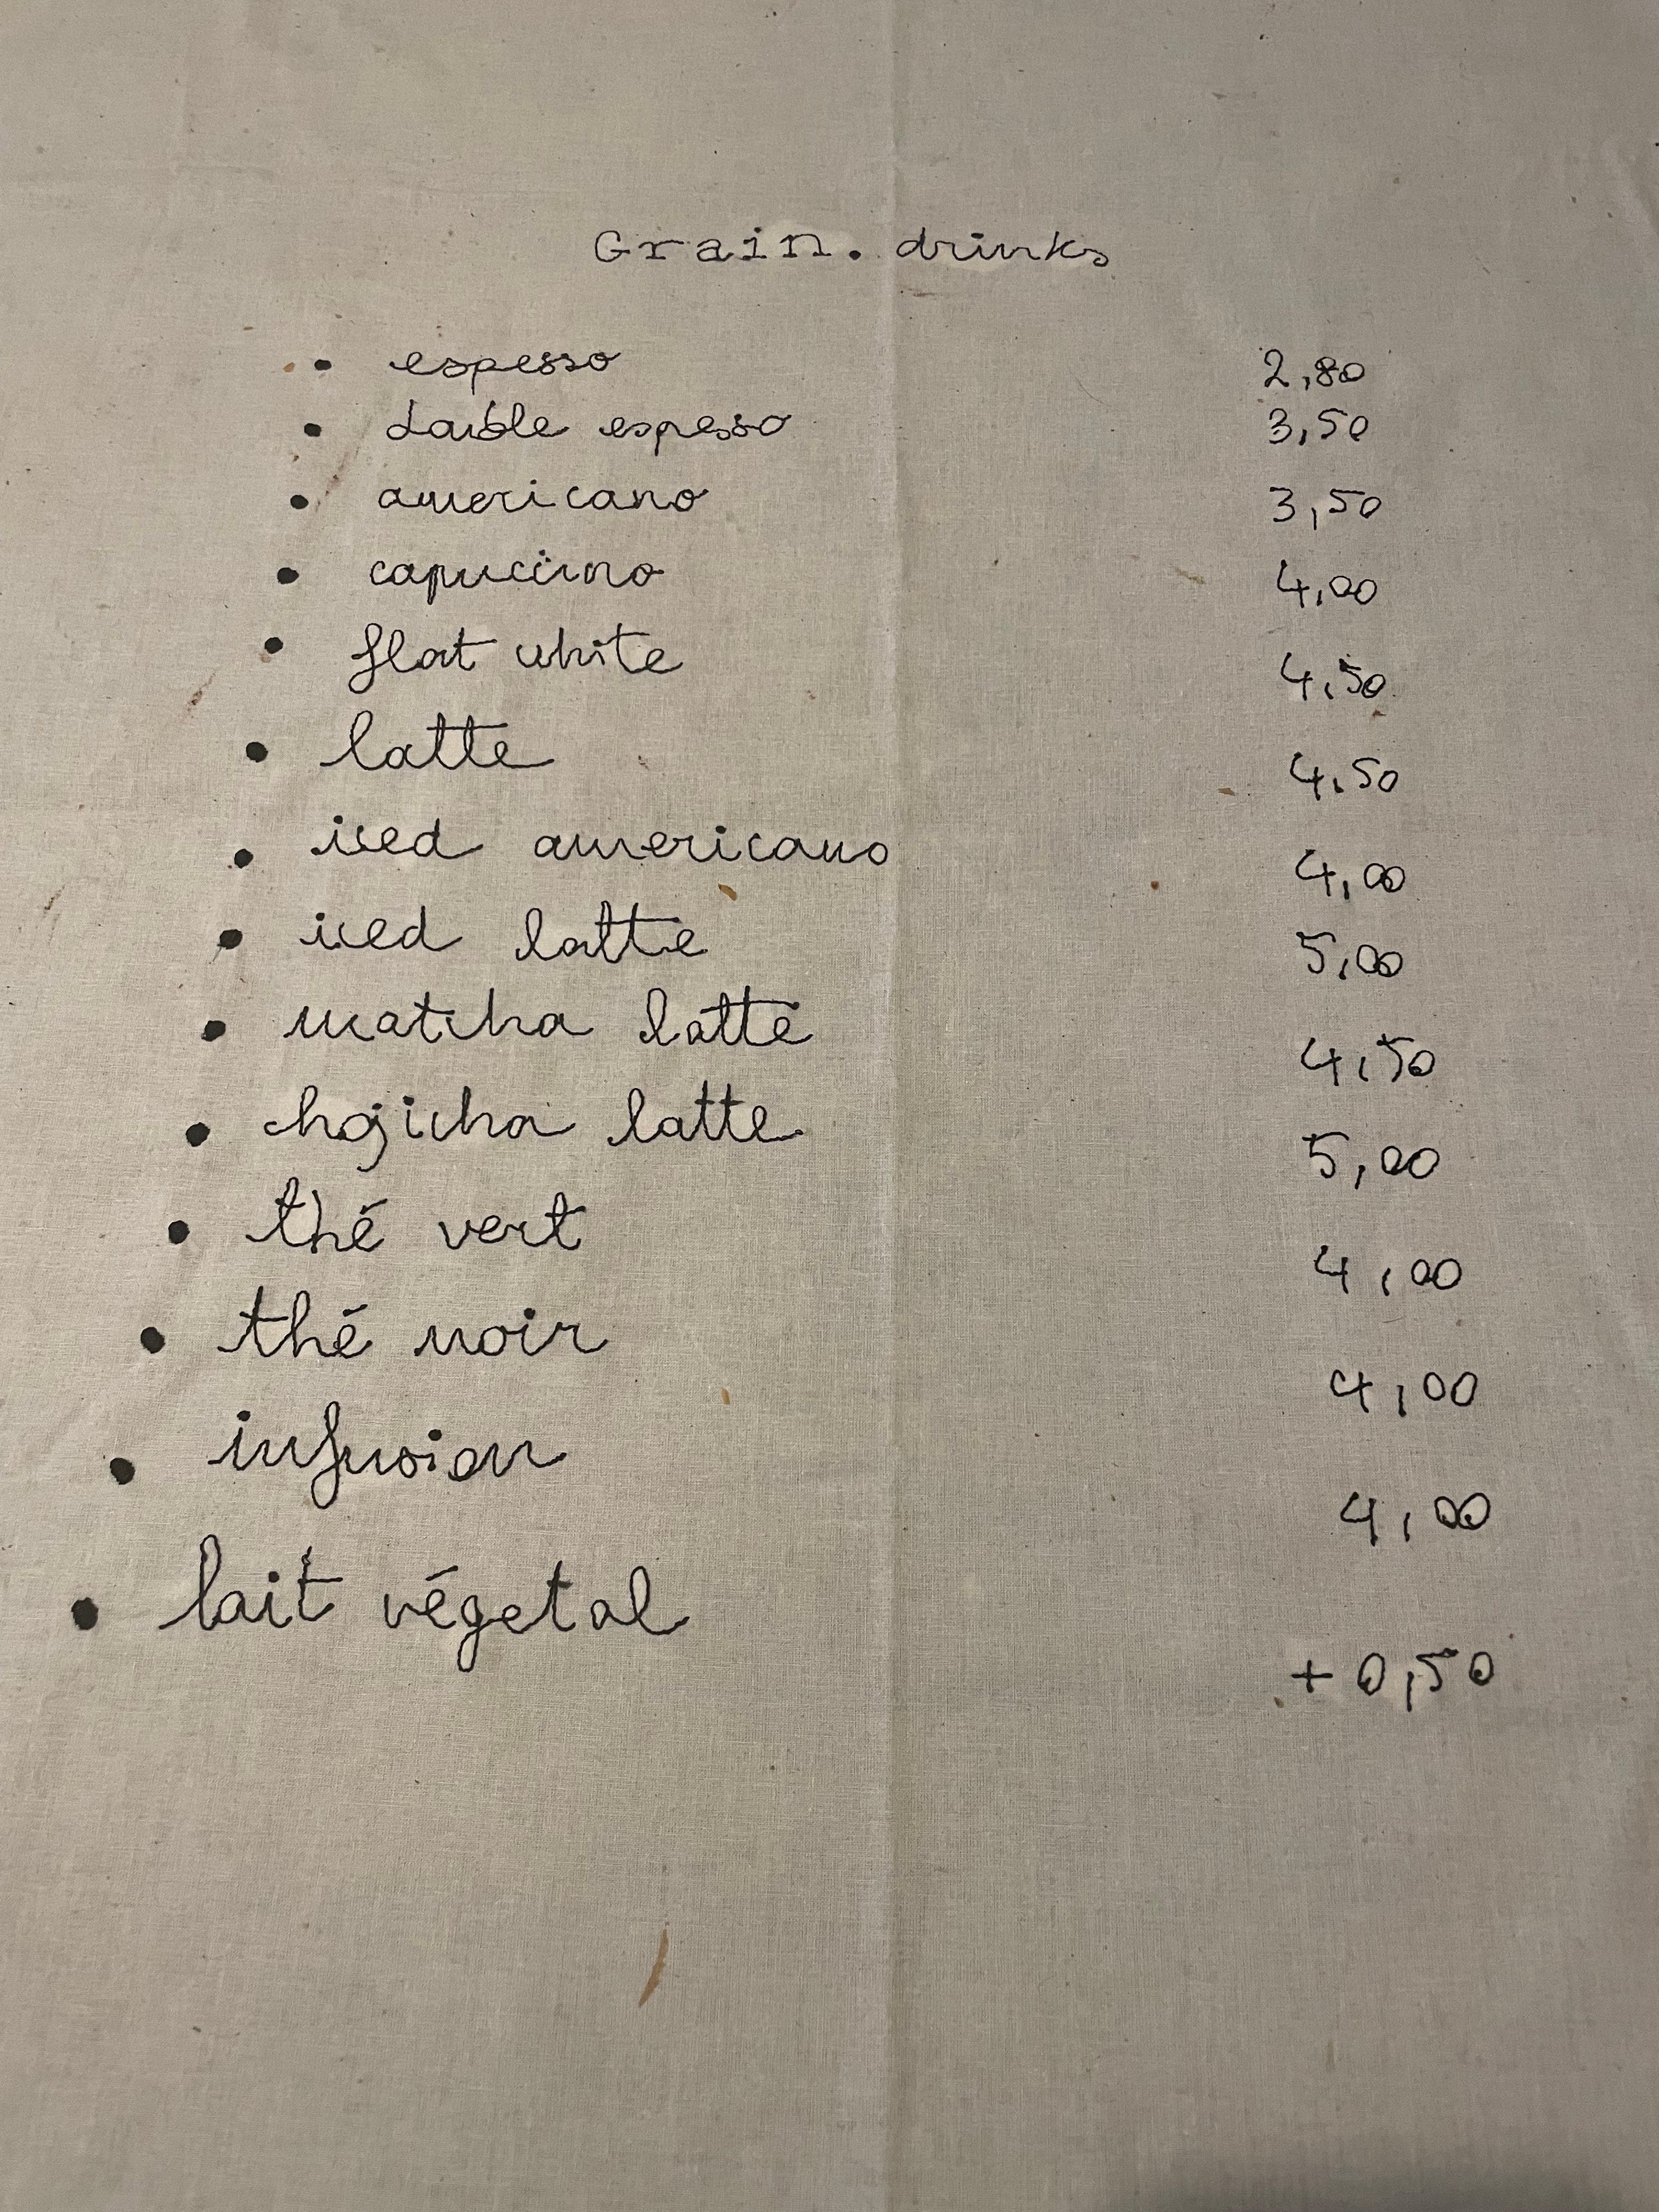 Grain. drinks
• espesso 2,80
• double espesso 3,50
• americano 3,50
• capucino 4,00
• flat white 4,50
• latte 4,50
• iced americano 4,00
• iced latte 5,00
• matcha latte 4,50
• hojicha latte 5,00
• thé vert 4,00
• thé noir 4,00
• infusion 4,00
• lait végetal +0,50